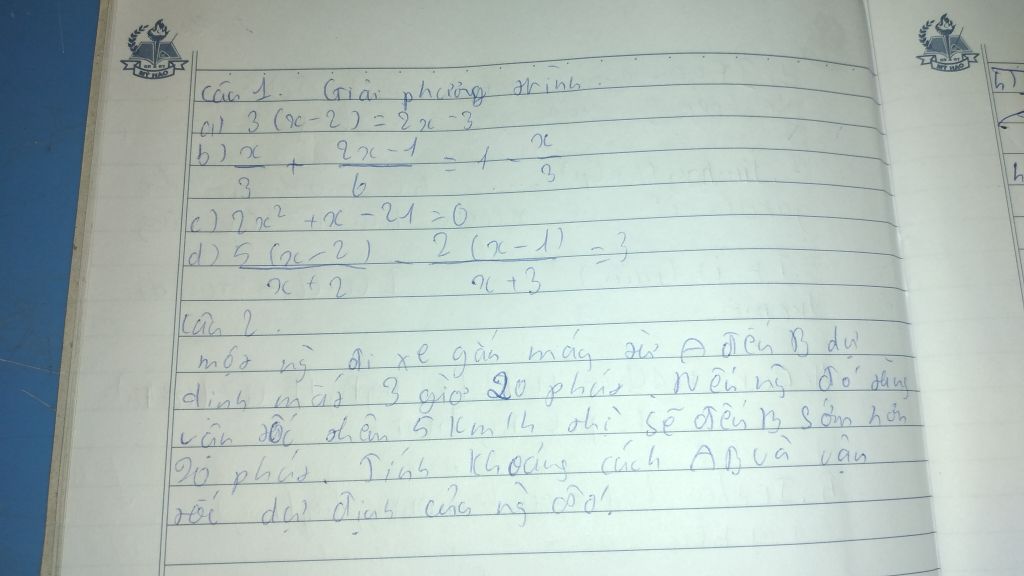 MT HÀO
Câu 1. Giải phương trình
a) 3 (x-2) = 2x -3
b) x/3 + (2x-1)/6 = 1 - x/3
c) 2x² + x - 21 = 0
d) 5 (x-2)/(x+2) - 2 (x-1)/(x+3) = 3
Câu 2.
một ng đi xe gắn máy từ A đến B dự
định mất 3 giờ 20 phút. Nếu ng đó tăng
vận tốc thêm 5 km/h thì sẽ đến B sớm hơn
20 phút. Tính khoảng cách AB và vận
tốc dự định của ng đó.
h)
h